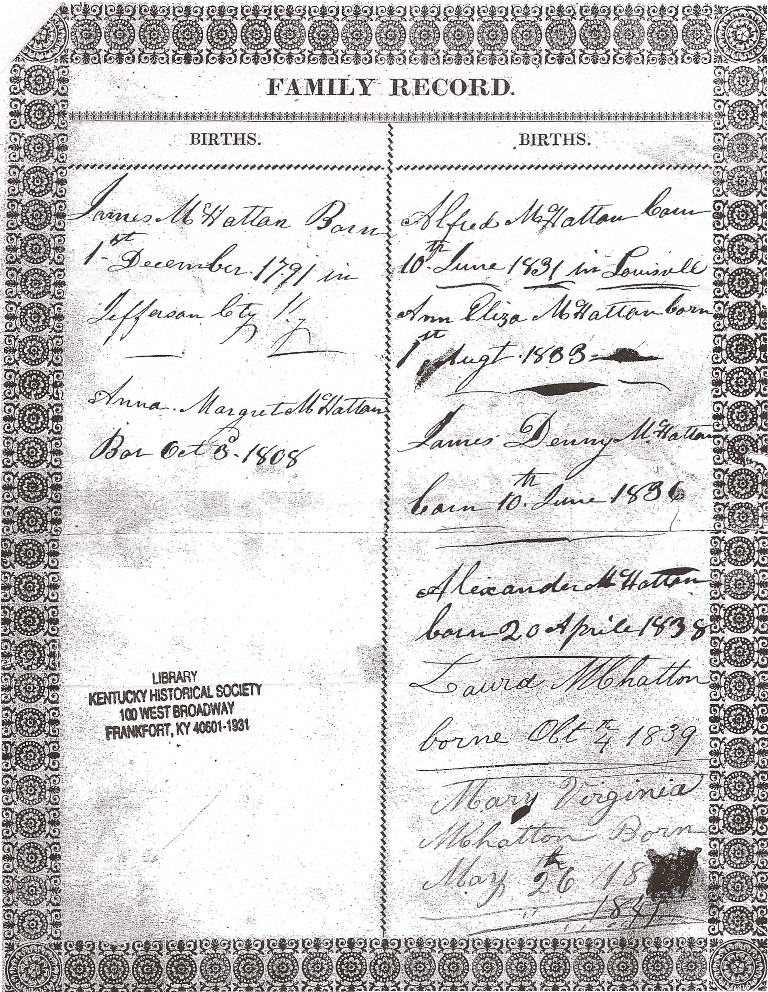 FAMILY RECORD.
BIRTHS.
James McHattan Born
1st December 1791 in
Jefferson Cty Ky
Anna Margret McHattan
Bor Oct 3 - 1808
LIBRARY
KENTUCKY HISTORICAL SOCIETY
100 WEST BROADWAY
FRANKFORT, KY 40601-1931
BIRTHS.
Alfred McHattan born
10th June 1831 in Louisvlle
Ann Eliza McHattan born
1st Augt 1833
James Denny McHattan
born 10th June 1836
Alexander McHattan
born 20 Aprile 1838
Laura McHatton
borne Obt 4th 1839
Mary Virginia
McHatton Born
May 26th 18